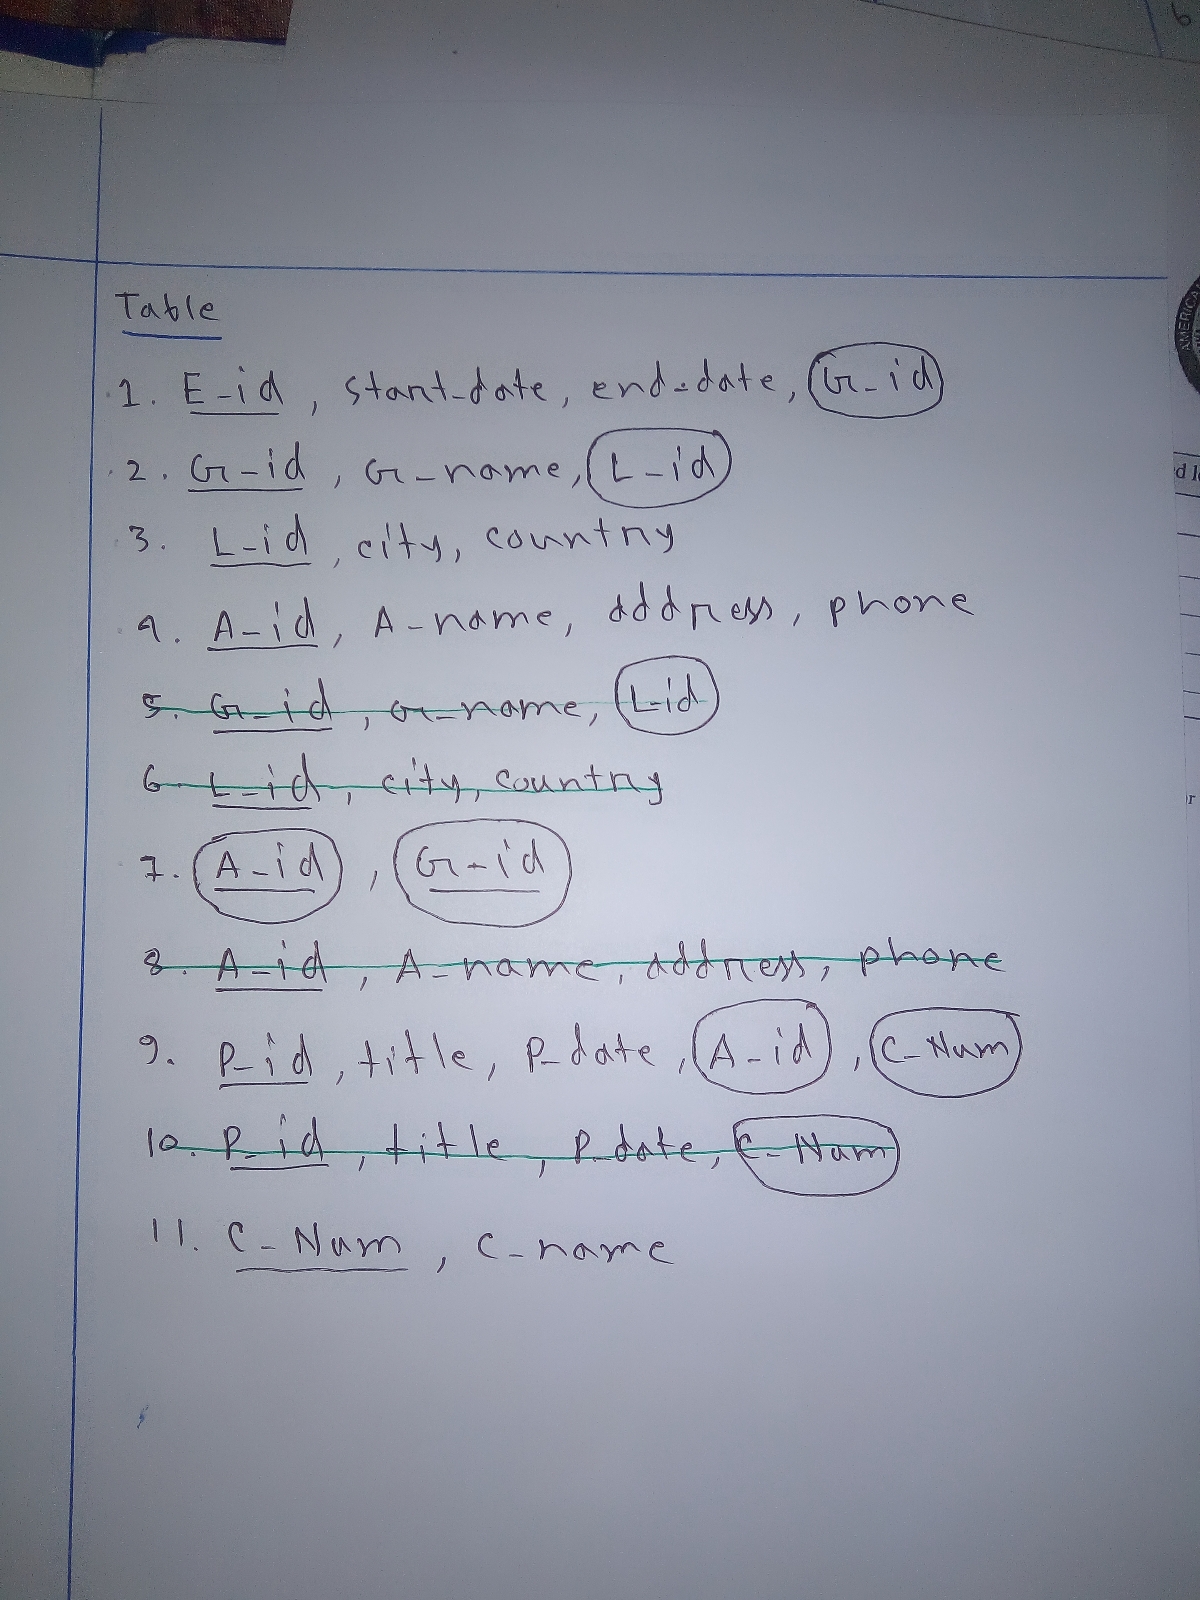 6
Table
AMERICA
1. E-id, start-date, end-date, G-id
2. G-id, G-name, L-id
d l
3. L-id, city, country
4. A-id, A-name, address, phone
5. G-id, G-name, L-id
6. L-id, city, country
7. A-id, G-id
8. A-id, A-name, address, phone
9. P-id, title, P-date, A-id, C-Num
10. P-id, title, P-date, C-Num
11. C-Num, C-name